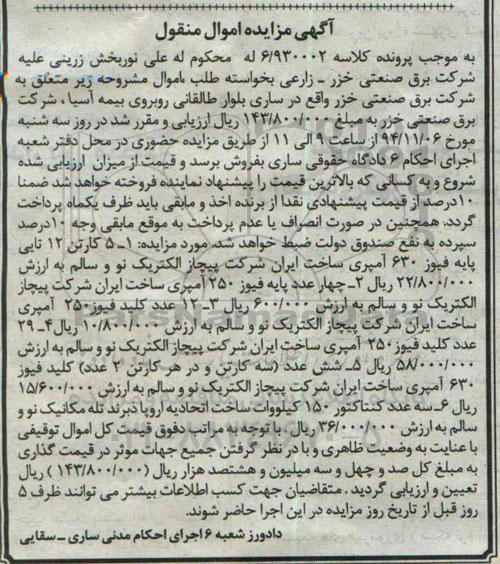 آگهی مزایده اموال منقول
به موجب پرونده کلاسه ۶/۹۳۰۰۰۲ له محکوم له علی نوربخش زرینی علیه
شرکت برق صنعتی خزر ـ زارعی بخواسته طلب ،اموال مشروحه زیر متعلق به
شرکت برق صنعتی خزر واقع در ساری بلوار طالقانی روبروی بیمه آسیا ، شرکت
برق صنعتی خزر به مبلغ ۱۴۳/۸۰۰/۰۰۰ ریال ارزیابی و مقرر شد در روز سه شنبه
مورخ ۹۴/۱۱/۰۶ از ساعت ۹ الی ۱۱ از طریق مزایده حضوری در محل دفتر شعبه
اجرای احکام ۶ دادگاه حقوقی ساری بفروش برسد و قیمت از میزان ارزیابی شده
شروع و به کسانی که بالاترین قیمت را پیشنهاد نماینده فروخته خواهد شد ضمنا
۱۰درصد از قیمت پیشنهادی نقدا از برنده اخذ و مابقی باید ظرف یکماه پرداخت
گردد. همچنین در صورت انصراف یا عدم پرداخت به موقع مابقی وجه ۱۰درصد
سپرده به نفع صندوق دولت ضبط خواهد شد. مورد مزایده: ۱ـ ۵ کارتن ۱۲ تایی
پایه فیوز ۶۳۰ آمپری ساخت ایران شرکت پیچاز الکتریک نو و سالم به ارزش
۲۲/۸۰۰/۰۰۰ ریال ۲ـ چهار عدد پایه فیوز ۲۵۰ آمپری ساخت ایران شرکت پیچاز
الکتریک نو و سالم به ارزش ۶۰۰/۰۰۰ ریال ۳ـ ۱۲ عدد کلید فیوز ۲۵۰ آمپری
ساخت ایران شرکت پیچاز الکتریک نو و سالم به ارزش ۱۰/۸۰۰/۰۰۰ ریال ۴ـ ۲۹
عدد کلید فیوز ۲۵۰ آمپری ساخت ایران شرکت پیچاز الکتریک نو و سالم به ارزش
۵۸/۰۰۰/۰۰۰ ریال ۵ـ شش عدد (سه کارتن و در هر کارتن ۲ عدد) کلید فیوز
۶۳۰ آمپری ساخت ایران شرکت پیچاز الکتریک نو و سالم به ارزش ۱۵/۶۰۰/۰۰۰
ریال ۶ـ سه عدد کنتاکتور ۱۵۰ کیلووات ساخت اتحادیه اروپا دبرند تله مکانیک نو و
سالم به ارزش ۳۶/۰۰۰/۰۰۰ ریال، با توجه به مراتب دفوق قیمت کل اموال توقیفی
با عنایت به وضعیت ظاهری و با در نظر گرفتن جمیع جهات موثر در قیمت گذاری
به مبلغ کل صد و چهل و سه میلیون و هشتصد هزار ریال (۱۴۳/۸۰۰/۰۰۰) ریال
تعیین و ارزیابی گردید . متقاضیان جهت کسب اطلاعات بیشتر می توانند ظرف ۵
روز قبل از تاریخ روز مزایده در این اجرا حاضر شوند.
دادورز شعبه ۶ اجرای احکام مدنی ساری ـ سقایی